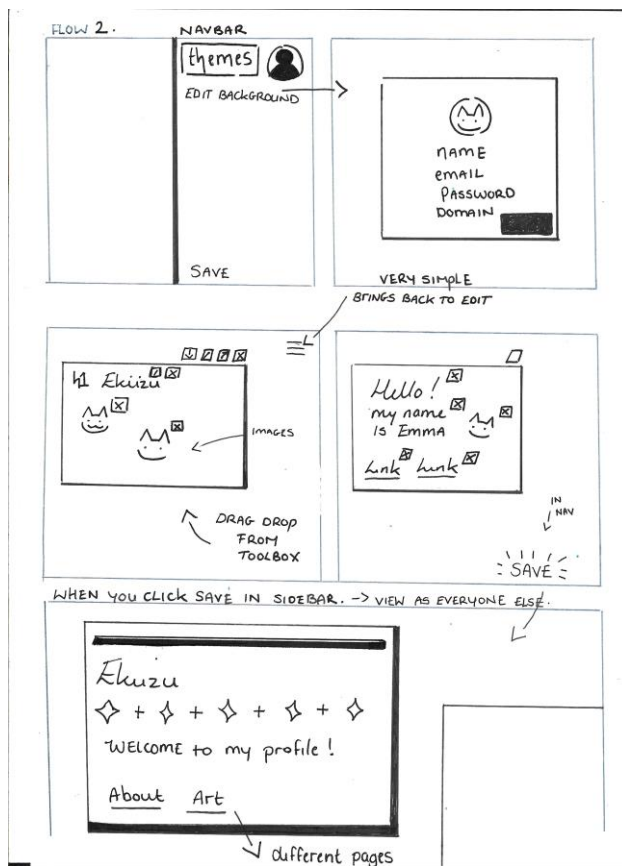 FLOW 2.
NAVBAR
themes
EDIT BACKGROUND
SAVE
NAME
EMAIL
PASSWORD
DOMAIN
VERY SIMPLE
BRINGS BACK TO EDIT
h1 Ekiizu
IMAGES
DRAG DROP
FROM
TOOLBOX
Hello!
my name
IS EMMA
Link Link
IN
NAV
SAVE
WHEN YOU CLICK SAVE IN SIDEBAR. -> VIEW AS EVERYONE ELSE.
Ekiizu
WELCOME to my profile!
About Art
different pages